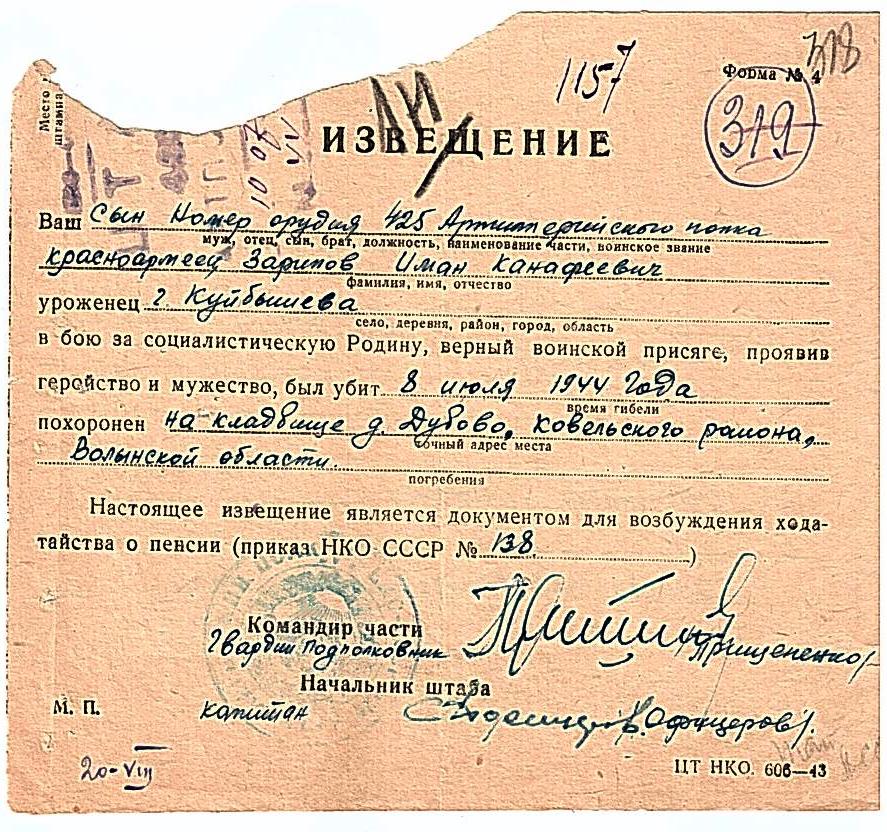 318
1157
Форма № 4
319
Место
штампа
ИЗВЕЩЕНИЕ
10 07
Ваш Сын Номер орудия 425 Артиллерийского полка
муж, отец, сын, брат, должность, наименование части, воинское звание
красноармеец Зарипов Иман Канафеевич
фамилия, имя, отчество
уроженец г. Куйбышева
село, деревня, район, город, область
в бою за социалистическую Родину, верный воинской присяге, проявив
геройство и мужество, был убит 8 июля 1944 года
время гибели
похоронен на кладбище д. Дубово, Ковельского района,
точный адрес места
Волынской области.
погребения
Настоящее извещение является документом для возбуждения хода-
тайства о пенсии (приказ НКО СССР № 138 )
Командир части
Гвардии Подполковник Прищепенко
Начальник штаба
М. П. капитан Офицеров
20-VIII
ЦТ НКО. 606—43